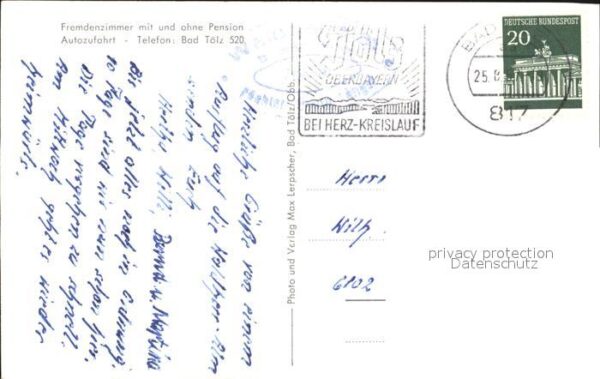 Fremdenzimmer mit und ohne Pension
Autozufahrt - Telefon: Bad Tölz 520.
Herzliche Grüße von einem
Ausflug auf die Waldherr-Alm
senden Euch
Heddy, Willi,
Bis jetzt alles noch in Ordnung.
10 Tage sind wir nun schon hier.
Die Tage vergehen zu schnell.
Am Mittwoch geht es wieder
heimwärts.
Photo und Verlag Max Lerpscher, Bad Tölz/Obb.
Tölz
OBERBAYERN
BEI HERZ-KREISLAUF
BAD
25.
817
DEUTSCHE BUNDESPOST
20
Herrn
Wilh.
6102
privacy protection
Datenschutz